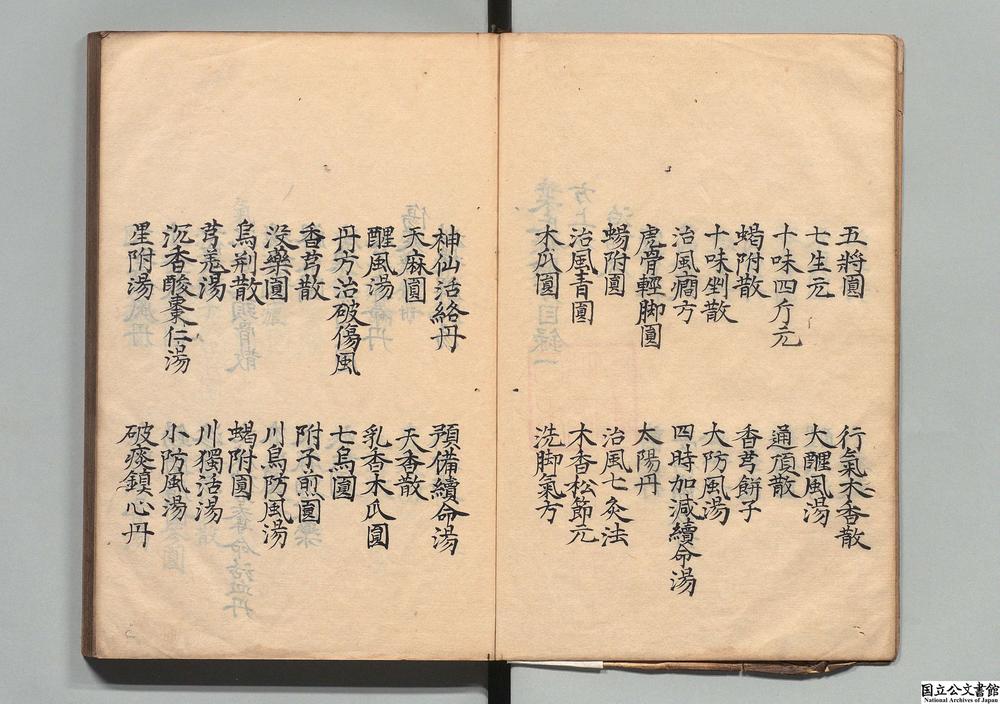 五將圓 行氣木香散
七生元 大醒風湯
十味四斤元 通頂散
蝎附散 香芎餅子
十味剉散 大防風湯
治風癇方 四時加減續命湯
虎骨輕脚圓 太陽丹
蜴附圓 治風七灸法
治風青圓 木香松節元
木瓜圓 洗脚氣方
神仙活絡丹 預備續命湯
天麻圓 天香散
醒風湯 乳香木瓜圓
丹方治破傷風 七烏圓
香芎散 附子煎圓
沒藥圓 川烏防風湯
烏荊散 蝎附圓
芎羗湯 川獨活湯
沉香酸棗仁湯 小防風湯
星附湯 破痰鎮心丹
国立公文書館
National Archives of Japan